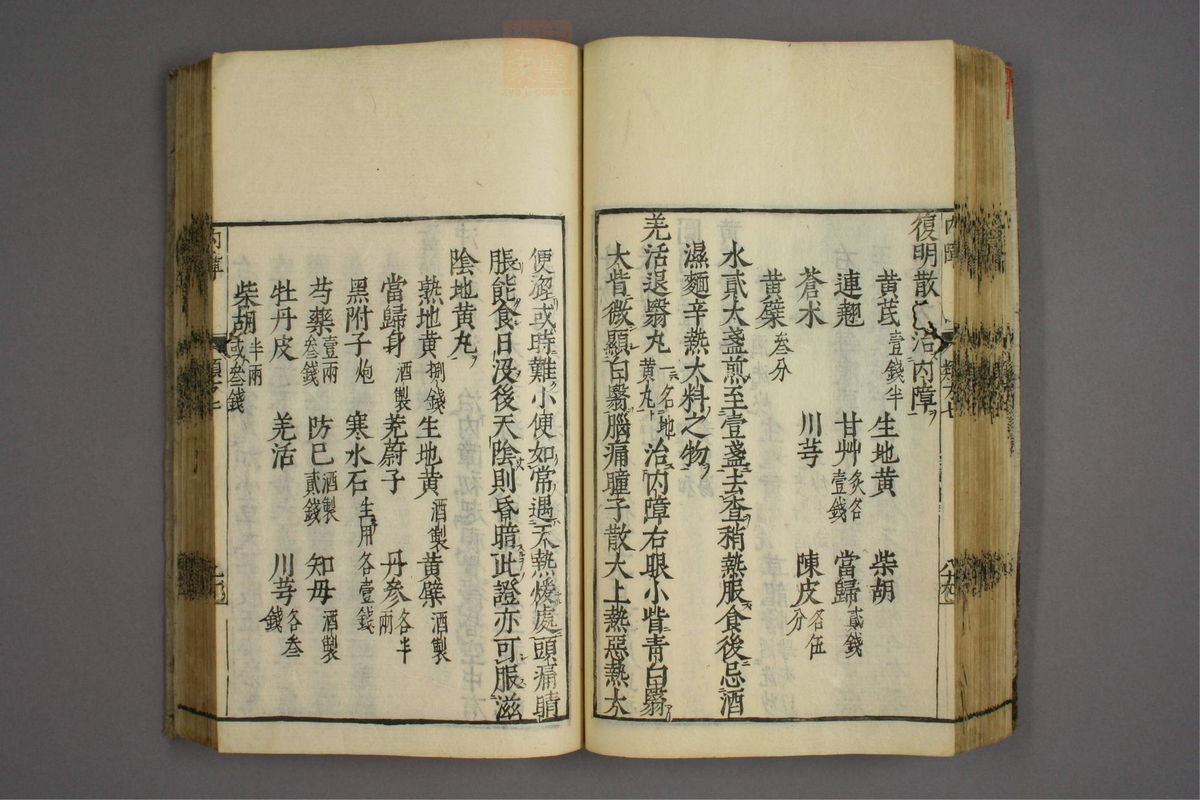 復明散 治内障
黄芪壹錢半 生地黄 柴胡
連翹 甘艸炙各壹錢 當歸貳錢
蒼朮 川芎 陳皮各伍分
黄蘗叁分
水貳大盞煎至壹盞去查稍熱服食後忌酒
濕麵辛熱大料之物
羌活退翳丸一名地黄丸 治内障右眼小眥青白翳
大眥微顯白翳腦痛瞳子散大上熱惡熱大
便澀或時難小便如常遇天熱煖處頭痛睛
脹能食日没後天陰則昏暗此證亦可服滋
陰地黄丸
熟地黄捌錢 生地黄酒製 黄蘗酒製
當歸身酒製 茺蔚子 丹參各半兩
黑附子炮 寒水石生用 各壹錢
芍藥壹兩叁錢 防已酒製貳錢 知母酒製
牡丹皮 羌活 川芎各叁錢
柴胡半兩或叁錢